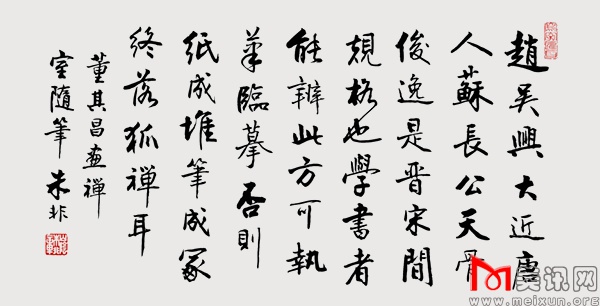 趙吳興大近唐
人蘇長公天骨
俊逸是晋宋間
規格也學書者
能辨此方可執
筆臨摹否則
紙成堆筆成冢
終落狐禪耳
董其昌畫禪
室隨筆 朱非
美讯网
www.meixun.org